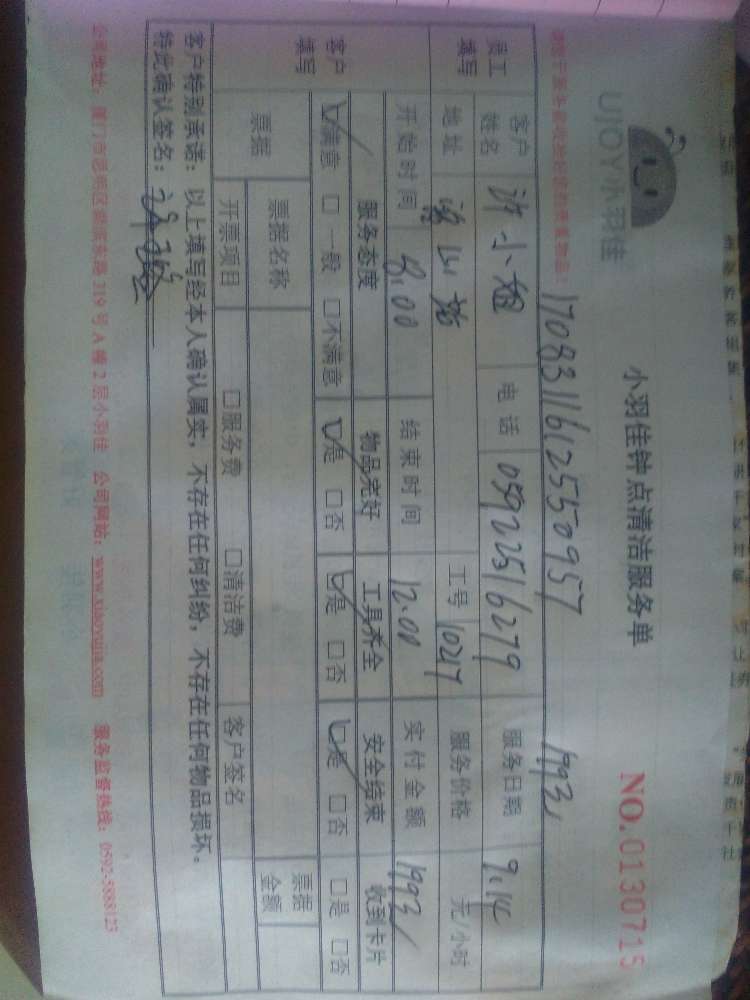 UJOY小羽佳
小羽佳钟点清洁服务单
NO.0130715
17083116125550957 1993/
员工填写 客户姓名 许小姐 电话 05922516279 服务日期 9.14
地址 工号 10217 服务价格 元/小时
开始时间 8.00 结束时间 12.00 实付金额 1993/
客户填写 服务态度 物品完好 工具齐全 安全结束 收到卡片
满意 □一般 □不满意 是 □否 是 □否 是 □否 □是 □否
票据 票据名称 票据金额
开票项目 □服务费 □清洁费 客户签名
客户特别承诺:以上填写经本人确认属实,不存在任何纠纷,不存在任何物品损坏。
特此确认签名:
公司地址:厦门市思明区 319号A幢2层小羽佳 公司网站:www.xiaoyujia.com 服务监督热线:0592-5888123